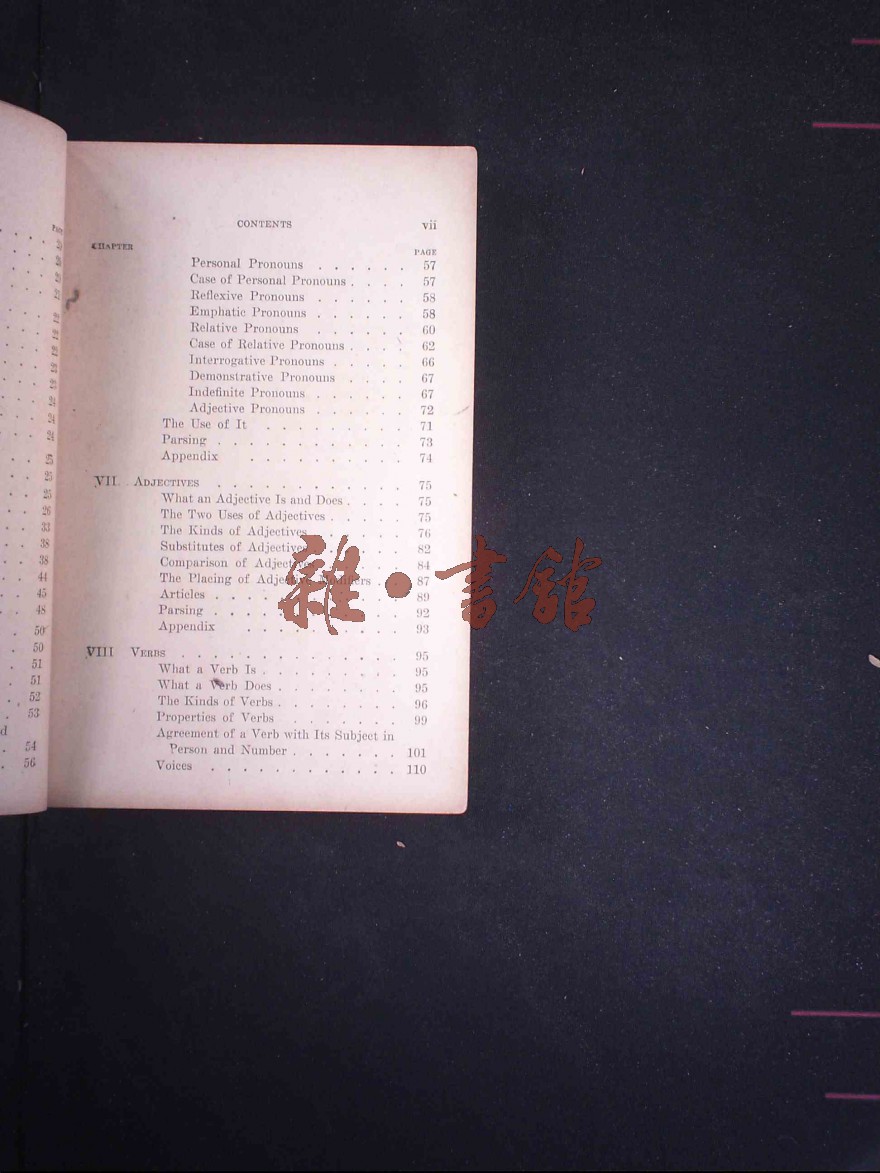 CONTENTS vii
CHAPTER PAGE
Personal Pronouns . . . . . . 57
Case of Personal Pronouns . . . . 57
Reflexive Pronouns . . . . . . 58
Emphatic Pronouns . . . . . . 58
Relative Pronouns . . . . . . 60
Case of Relative Pronouns . . . . 62
Interrogative Pronouns . . . . . 66
Demonstrative Pronouns . . . . 67
Indefinite Pronouns . . . . . 67
Adjective Pronouns . . . . . . 72
The Use of It . . . . . . . . 71
Parsing . . . . . . . . . . 73
Appendix . . . . . . . . 74
VII. ADJECTIVES . . . . . . . . . . 75
What an Adjective Is and Does . . . . 75
The Two Uses of Adjectives . . . . . 75
The Kinds of Adjectives . . . . . 76
Substitutes of Adjectives . . . . . 82
Comparison of Adjectives . . . . . 84
The Placing of Adjective Modifiers . . . 87
Articles . . . . . . . . . . 89
Parsing . . . . . . . . . . 92
Appendix . . . . . . . . 93
VIII VERBS . . . . . . . . . . . 95
What a Verb Is . . . . . . . . 95
What a Verb Does . . . . . . . 95
The Kinds of Verbs . . . . . . . 96
Properties of Verbs . . . . . . 99
Agreement of a Verb with Its Subject in
Person and Number . . . . . . . 101
Voices . . . . . . . . . . . 110
25
25
26
33
38
38
44
45
48
50
50
51
51
52
53
d
54
56
雜·書館